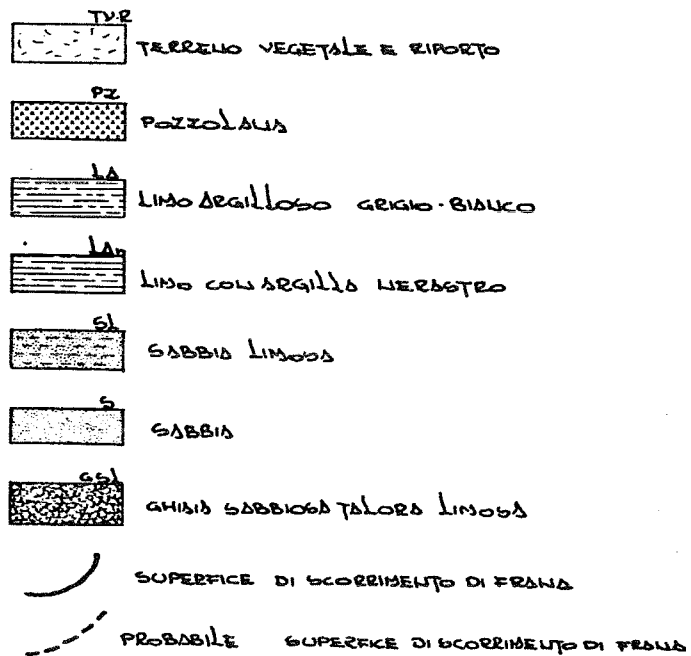 TV-R
TERRENO VEGETALE E RIPORTO
PZ
POZZOLANA
LA
LIMO ARGILLOSO GRIGIO-BIANCO
LAn
LIMO CON ARGILLA NERASTRO
SL
SABBIA LIMOSA
S
SABBIA
GSL
GHIAIA SABBIOSA TALORA LIMOSA
SUPERFICE DI SCORRIMENTO DI FRANA
PROBABILE SUPERFICE DI SCORRIMENTO DI FRANA